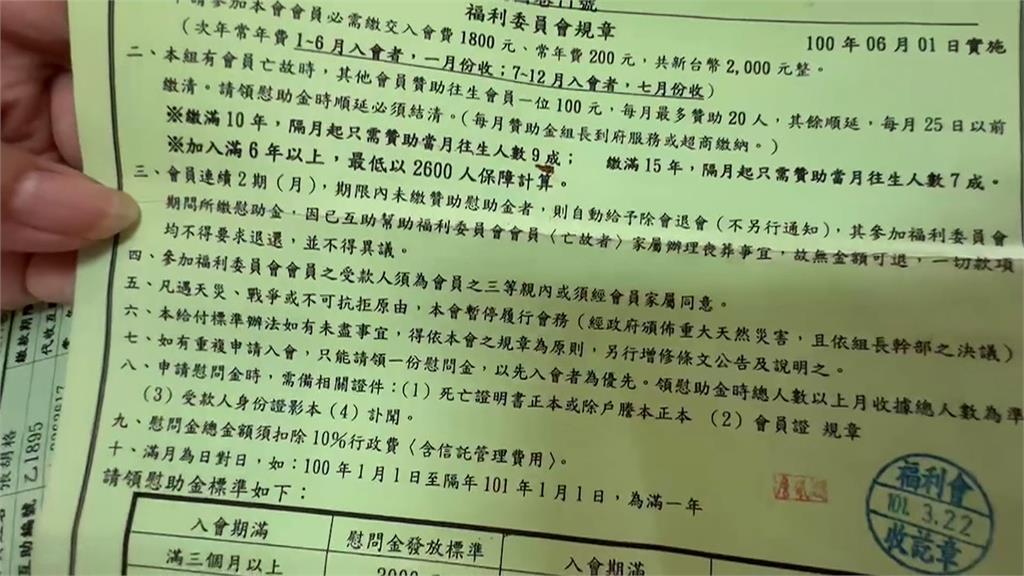 福利委員會規章
100 年 06 月 01 日實施
請參加本會會員必需繳交入會費 1800 元、常年費 200 元,共新台幣 2,000 元整。
(次年常年費 1~6 月入會者,一月份收;7~12 月入會者,七月份收)
二、本組有會員亡故時,其他會員贊助往生會員一位 100 元,每月最多贊助 20 人,其餘順延,每月 25 日以前
繳清。請領慰助金時順延必須結清。(每月贊助金組長到府服務或超商繳納。)
※繳滿 10 年,隔月起只需贊助當月往生人數 9 成; 繳滿 15 年,隔月起只需贊助當月往生人數 7 成。
※加入滿 6 年以上,最低以 2600 人保障計算。
三、會員連續 2 期(月),期限內未繳贊助慰助金者,則自動給予除會退會(不另行通知),其參加福利委員會
期間所繳慰助金,因已互助幫助福利委員會會員〈亡故者〉家屬辦理喪葬事宜,故無金額可退,一切款項
均不得要求退還,並不得異議。
四、參加福利委員會會員之受款人須為會員之三等親內或須經會員家屬同意。
五、凡遇天災、戰爭或不可抗拒原由,本會暫停履行會務(經政府頒佈重大天然災害,且依組長幹部之決議)
六、本給付標準辦法如有未盡事宜,得依本會之規章為原則,另行增修條文公告及說明之。
七、如有重複申請入會,只能請領一份慰問金,以先入會者為優先。領慰助金時總人數以上月收據總人數為準
八、申請慰問金時,需備相關證件:(1) 死亡證明書正本或除户謄本正本 (2) 會員證 規章
(3) 受款人身份證影本 (4) 訃聞。
九、慰問金總金額須扣除 10%行政費〈含信託管理費用〉。
十、滿月為日對日,如:100 年 1 月 1 日至隔年 101 年 1 月 1 日,為滿一年
請領慰助金標準如下:
入會期滿
慰問金發放標準
入會期滿
滿三個月以上
福利會
101. 3.22
收訖章
繳款期限
代收互
張胡格
互助編號
乙1895